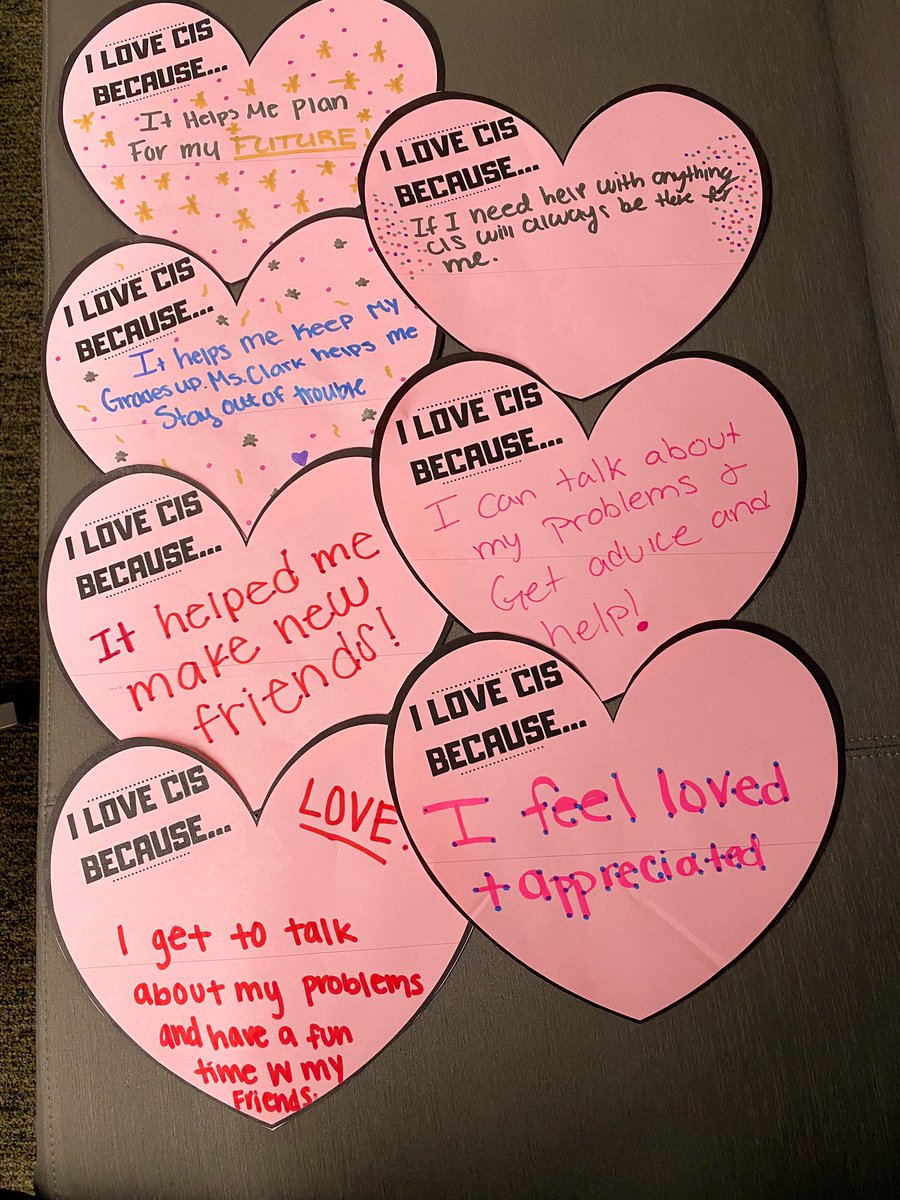 I LOVE CIS
BECAUSE...
It Helps Me Plan
For my FUTURE!
I LOVE CIS
BECAUSE...
If I need help with anything
CIS will always be there for
me.
I LOVE CIS
BECAUSE...
It helps me keep My
Grades up. Ms. Clark helps me
Stay out of trouble
I LOVE CIS
BECAUSE...
I can talk about
my problems &
Get advice and
help!
I LOVE CIS
BECAUSE...
It helped me
make new
friends!
I LOVE CIS
BECAUSE...
I feel loved
+ appreciated
I LOVE CIS
BECAUSE...
LOVE.
I get to talk
about my problems
and have a fun
time W my
Friends.